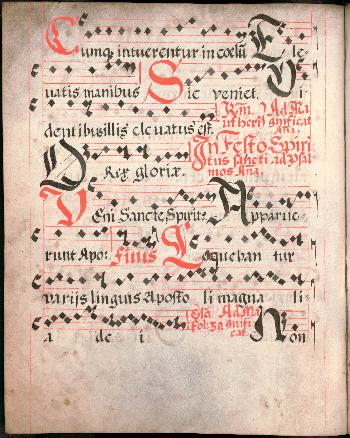 Cumq intuerentur in cœlū Ele-
uatis manibus Sic veniet. Vi
dentibusillis eleuatus est.
Rm. Ad Ma
gnificat
In Festo Spiri
tus sancti ad Psal
mos Aña.
O Rex gloriæ.
VEni Sancte Spirit9 Apparue-
runt Apo: Finis Loqueban tur
varijs linguis Aposto li magna li-
a de i Non